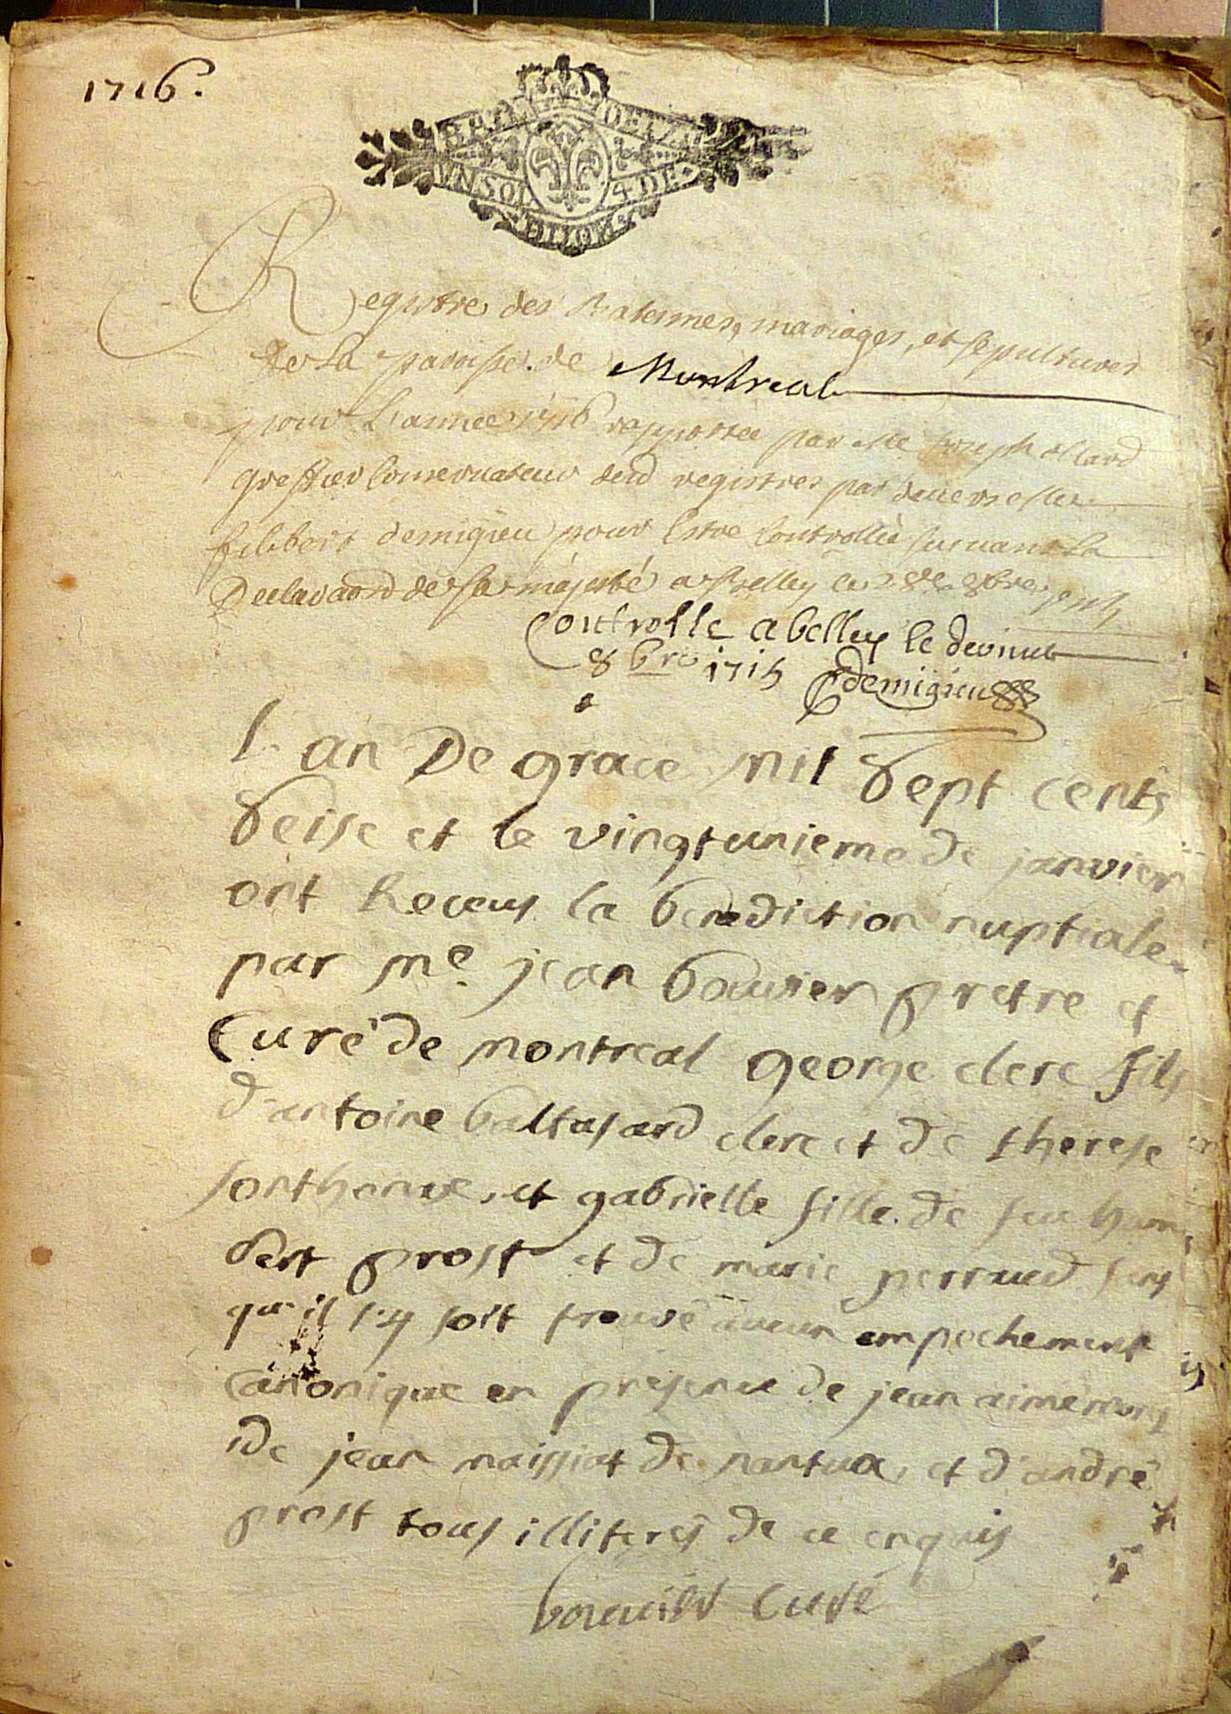 1716.
UN SOL 4 DE.
Registre des Batesmes, mariages, et sepultures
de la paroisse de Montreal
pour L'annee 1716 rapportée par Me Joseph
greffier Conservateur desd registres par devers
filibert demigieu pour Estre Controllée suivant la
Declaraaon de sa majesté a Belley ce 8bre
Controlle a belley le
8bre 1715 demigieu
l'an De grace mil Sept cents
Seise et le vingtunieme de janvier
ont Receus la benediction nuptiale
par me jean bouvier pretre et
Curé de montreal george clerc fils
d'antoine baltasard clerc et de therese
sonthonax, et gabrielle fille de feu hum
bert prost et de marie perraud sans
qu'il s'y soit trouvé aucun empechement
canonique en presence de jean aimé
de jean maissiat de nantua, et d'andré
prost tous illiterés de ce enquis
bouvier Curé